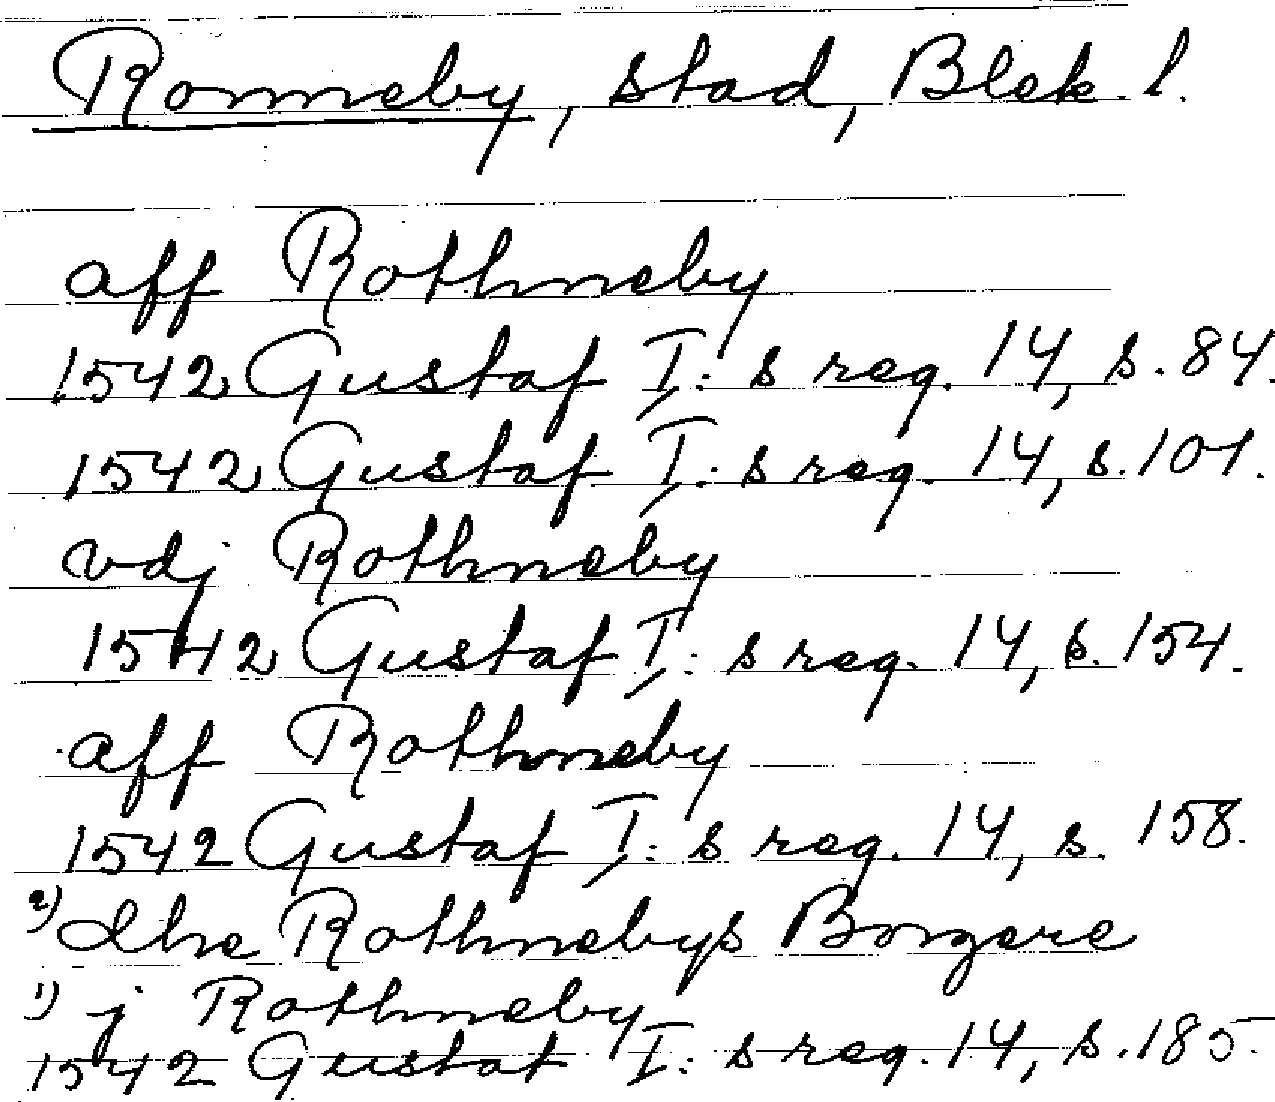 Ronneby, stad, Blek. l.
aff Rothneby
1542 Gustaf I: s reg. 14, s. 84.
1542 Gustaf I: s reg. 14, s. 101.
vdj Rothneby
1542 Gustaf I: s reg. 14, s. 154.
aff Rothneby
1542 Gustaf I: s reg. 14, s. 158.
2) dhe Rothnebys Borgere
1) j Rothneby
1542 Gustaf I: s reg. 14, s. 185.